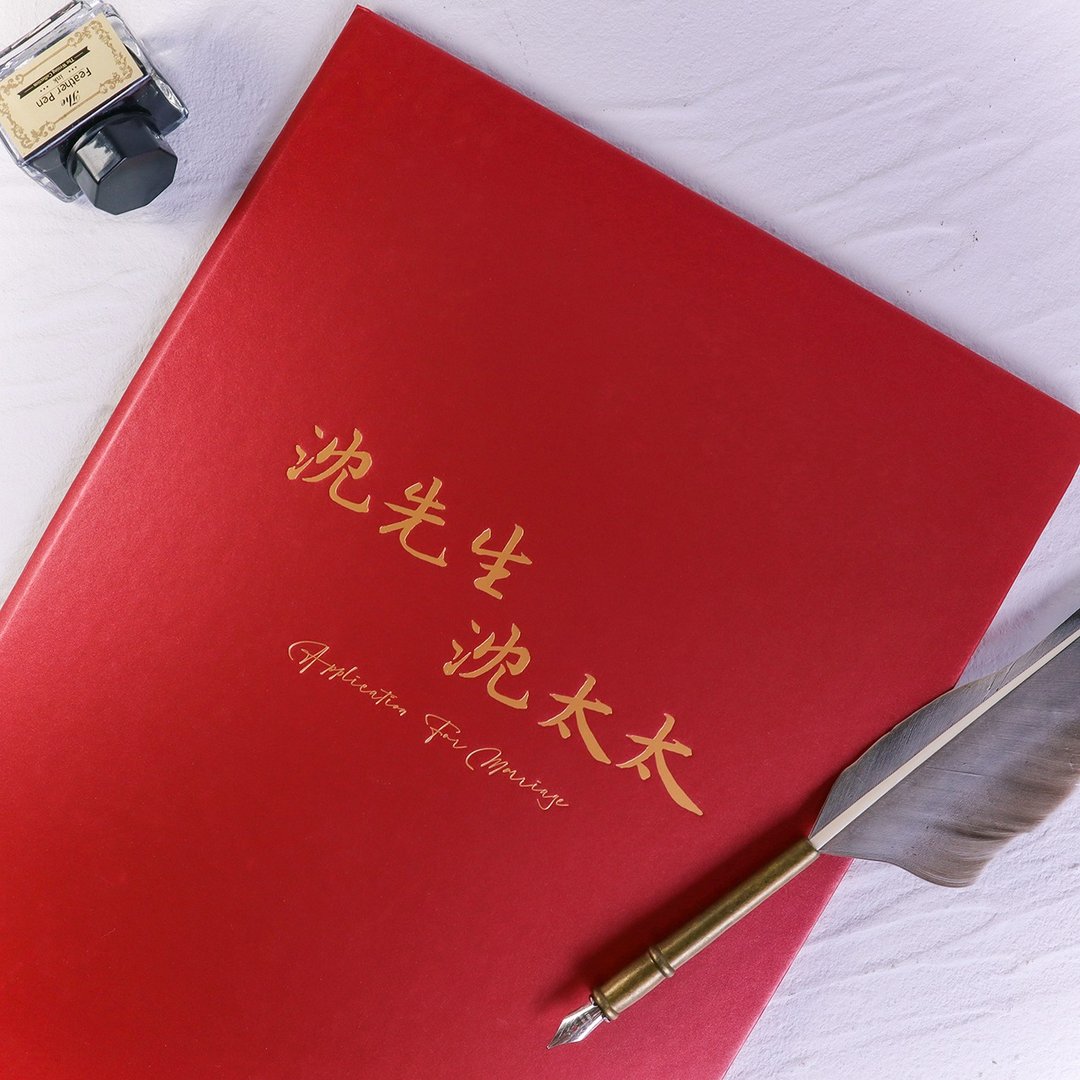 沈先生
沈太太
Application For Marriage
The
Feather Pen
... ink ...
The Writing Collection